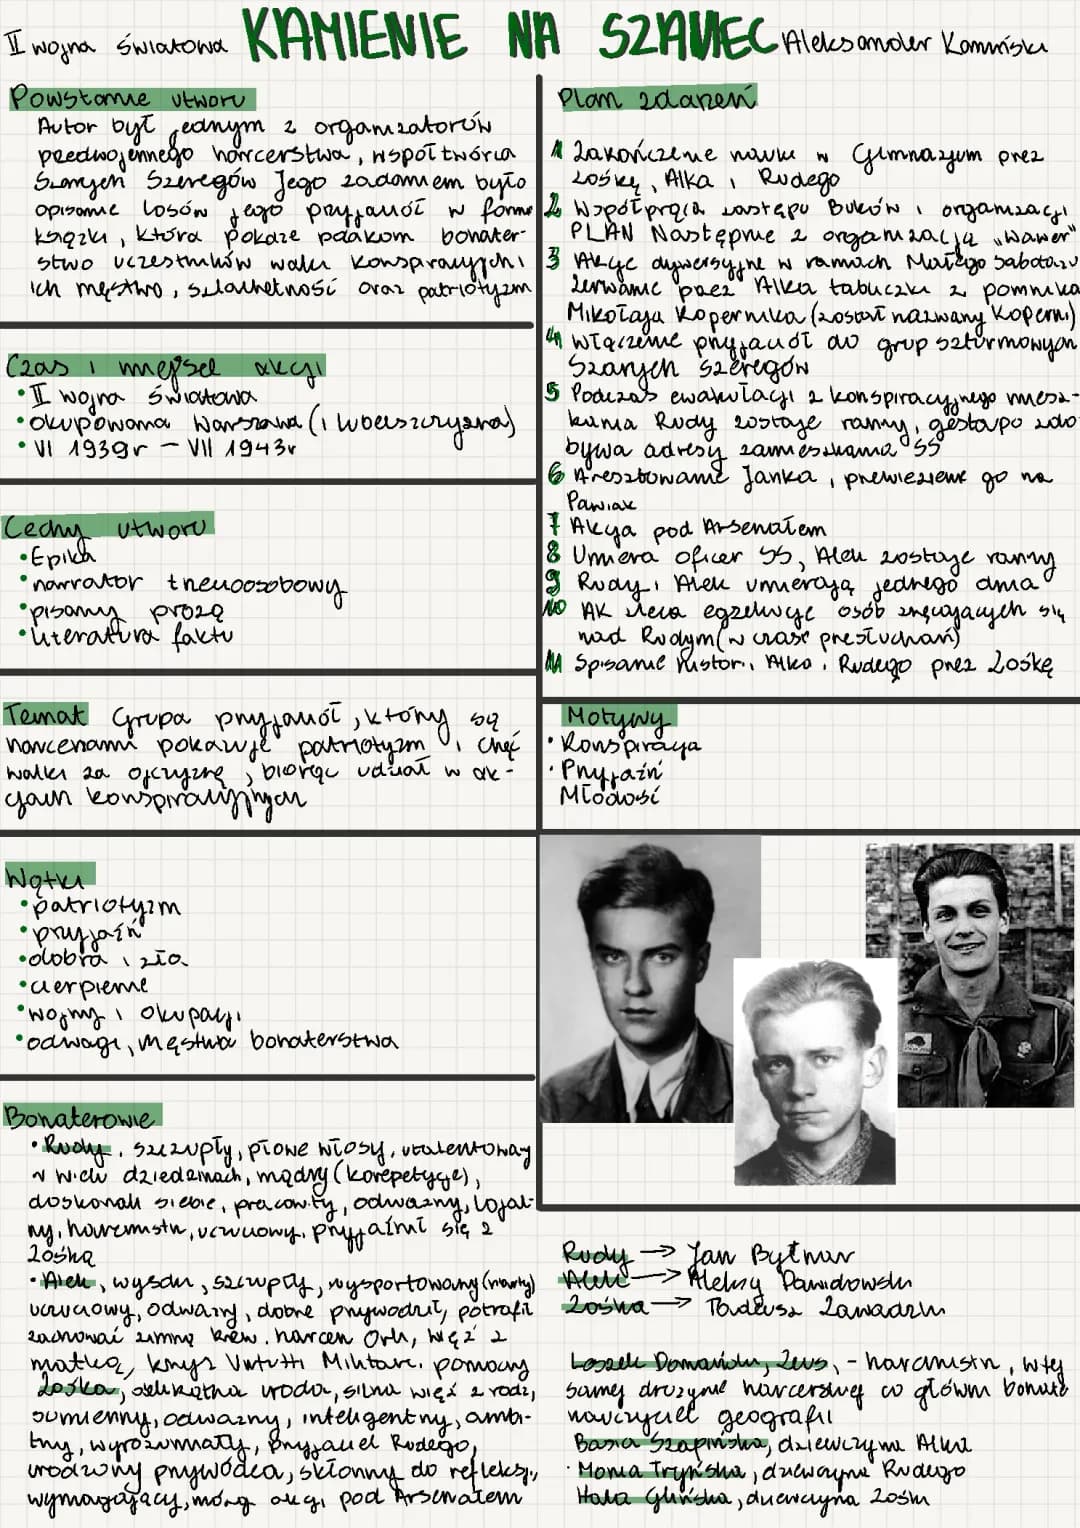 II wojna światowa KAMIENIE NA SZANIEC Aleksander Kamiński
Powstanie utworu
Autor był jednym z organizatorów
przedwojennego harcerstwa, współtwórca
Szarych Szeregów Jego zadaniem było
opisanie losów jego przyjaciół w formie
książki, która pokaże polakom bohater-
stwo uczestników walk konspiracyjnych i
ich męstwo, szlachetność oraz patriotyzm
Czas i miejsce akcji
• II wojna światowa
• okupowana Warszawa (i lubelszczyzna)
• VI 1939r - VII 1943r
Cechy utworu
• Epika
• narrator trzecioosobowy
• pisany prozą
• literatura faktu
Temat Grupa przyjaciół, którzy są
harcerzami pokazuje patriotyzm i chęć
walki za ojczyznę, biorąc udział w ak-
cjach konspiracyjnych
Wątki
• patriotyzm
• przyjaźń
• dobra i zła
• cierpienie
• wojny i okupacji
• odwagi, męstwa bohaterstwa
Bohaterowie
• Rudy, szczupły, płowe włosy, utalentowany
w wielu dziedzinach, mądry (korepetycje),
doskonali siebie, pracowity, odważny, lojal-
ny, harcmistrz, uczuciowy, przyjaźni się z
Zośką
• Alek, wysoki, szczupły, wysportowany (narty)
uczuciowy, odważny, dobrze przywodził, potrafił
zachować zimną krew. harcerz Orli, więź z
matką, krzyż Virtutti Militari. pomocny
Zośka, delikatna uroda, silna więź z rodz,
sumienny, odważny, inteligentny, ambi-
tny, wyrozumiały, przyjaciel Rudego,
urodzony przywódca, skłonny do refleksji,
wymagający, mózg akcji pod Arsenałem
Plan zdarzeń
1 Zakończenie nauki w Gimnazjum przez
Zośkę, Alka i Rudego
2 Współpraca zastępu Buków i organizacji
PLAN Następnie z organizacją "Wawer"
3 Akcje dywersyjne w ramach Małego Sabotażu
Zerwanie przez Alka tabliczki z pomnika
Mikołaja Kopernika (został nazwany Koperni)
4 włączenie przyjaciół do grup szturmowych
Szarych Szeregów
5 Podczas ewakulacji z konspiracyjnego miesz-
kania Rudy zostaje ranny, gestapo zdo-
bywa adresy zamieszkania SS
6 Aresztowanie Janka, przewiezienie go na
Pawiak
7 Akcja pod Arsenałem
8 Umiera oficer SS, Alek zostaje ranny
9 Rudy i Alek umierają jednego dnia
10 AK zleca egzekucje osób znęcających się
nad Rudym (w czasie przesłuchań)
11 Spisanie histori, Alka i Rudego przez Zośkę
Motywy
• Konspiracja
• Przyjaźń
Młodość
Rudy → Jan Bytnar
Alek → Aleksy Dawidowski
Zośka → Tadeusz Zawadzki
Leszek Domański, Zeus, - harcmistrz, w tej
samej drużynie harcerskiej co główni bohate
nauczyciel geografii
Basia Szapińska, dziewczyna Alka
• Monia Tryńska, dziewczyna Rudego
Hala Glińska, dziewczyna Zośki